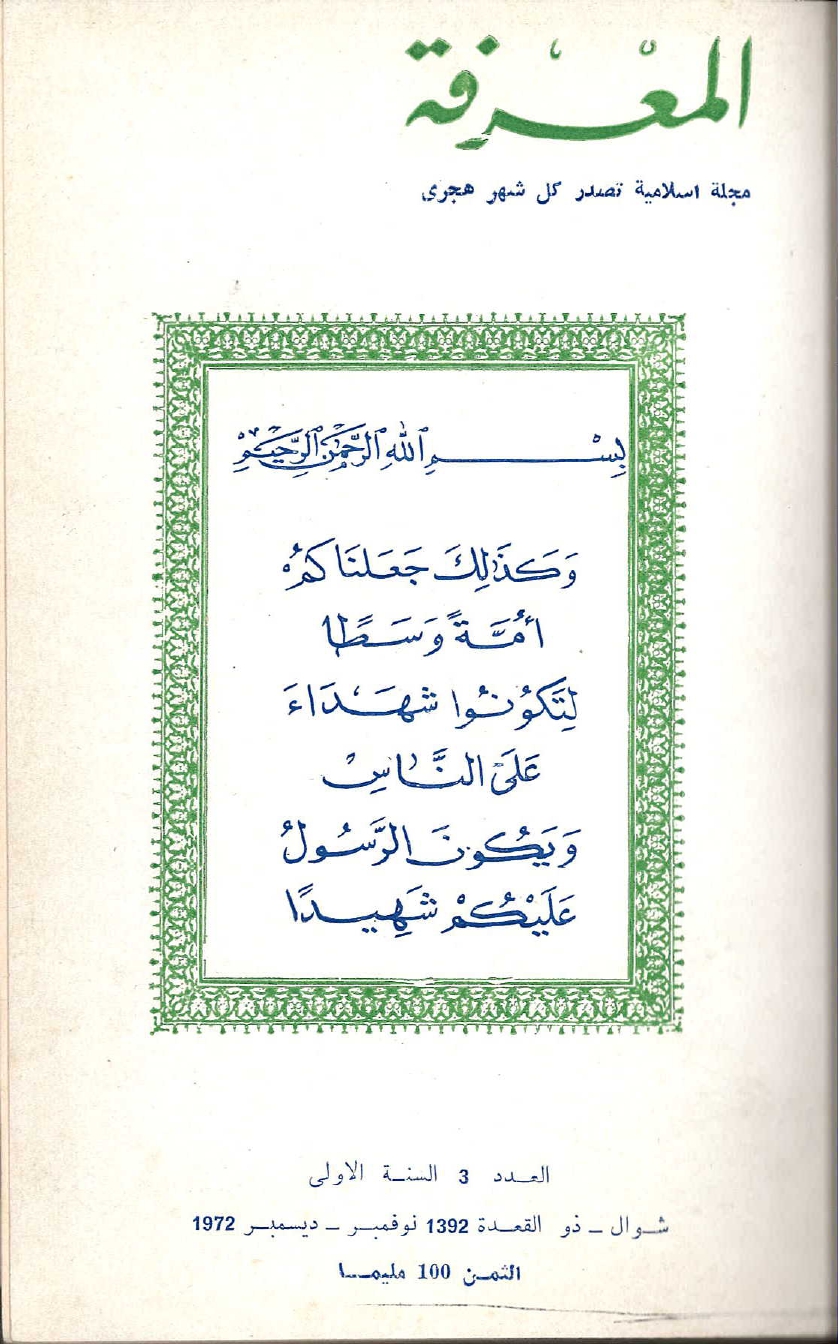 المعرفة
مجلة اسلامية تصدر كل شهر هجرى
بِسْمِ اللهِ الرَّحْمٰنِ الرَّحِيْمِ
وَكَذَٰلِكَ جَعَلْنَاكُمْ
أُمَّةً وَسَطًا
لِتَكُونُوا شُهَدَاءَ
عَلَى النَّاسِ
وَيَكُونَ الرَّسُولُ
عَلَيْكُمْ شَهِيدًا
العدد 3 السنة الاولى
شوال - ذو القعدة 1392 نوفمبر - ديسمبر 1972
الثمن 100 مليما